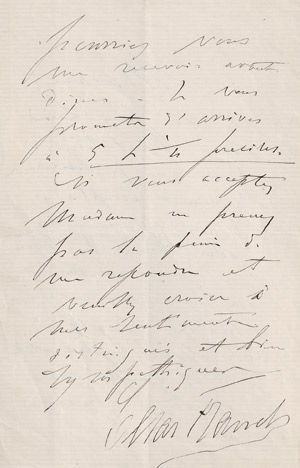 pourriez vous
me recevoir avant
diner - Je vous
promets d'arriver
à 5 h ½ précises.
Si vous acceptez
Madame ne prenez
pas la peine de
me répondre et
veuillez croire à
mes sentiments
distingués et bien
sympathiques